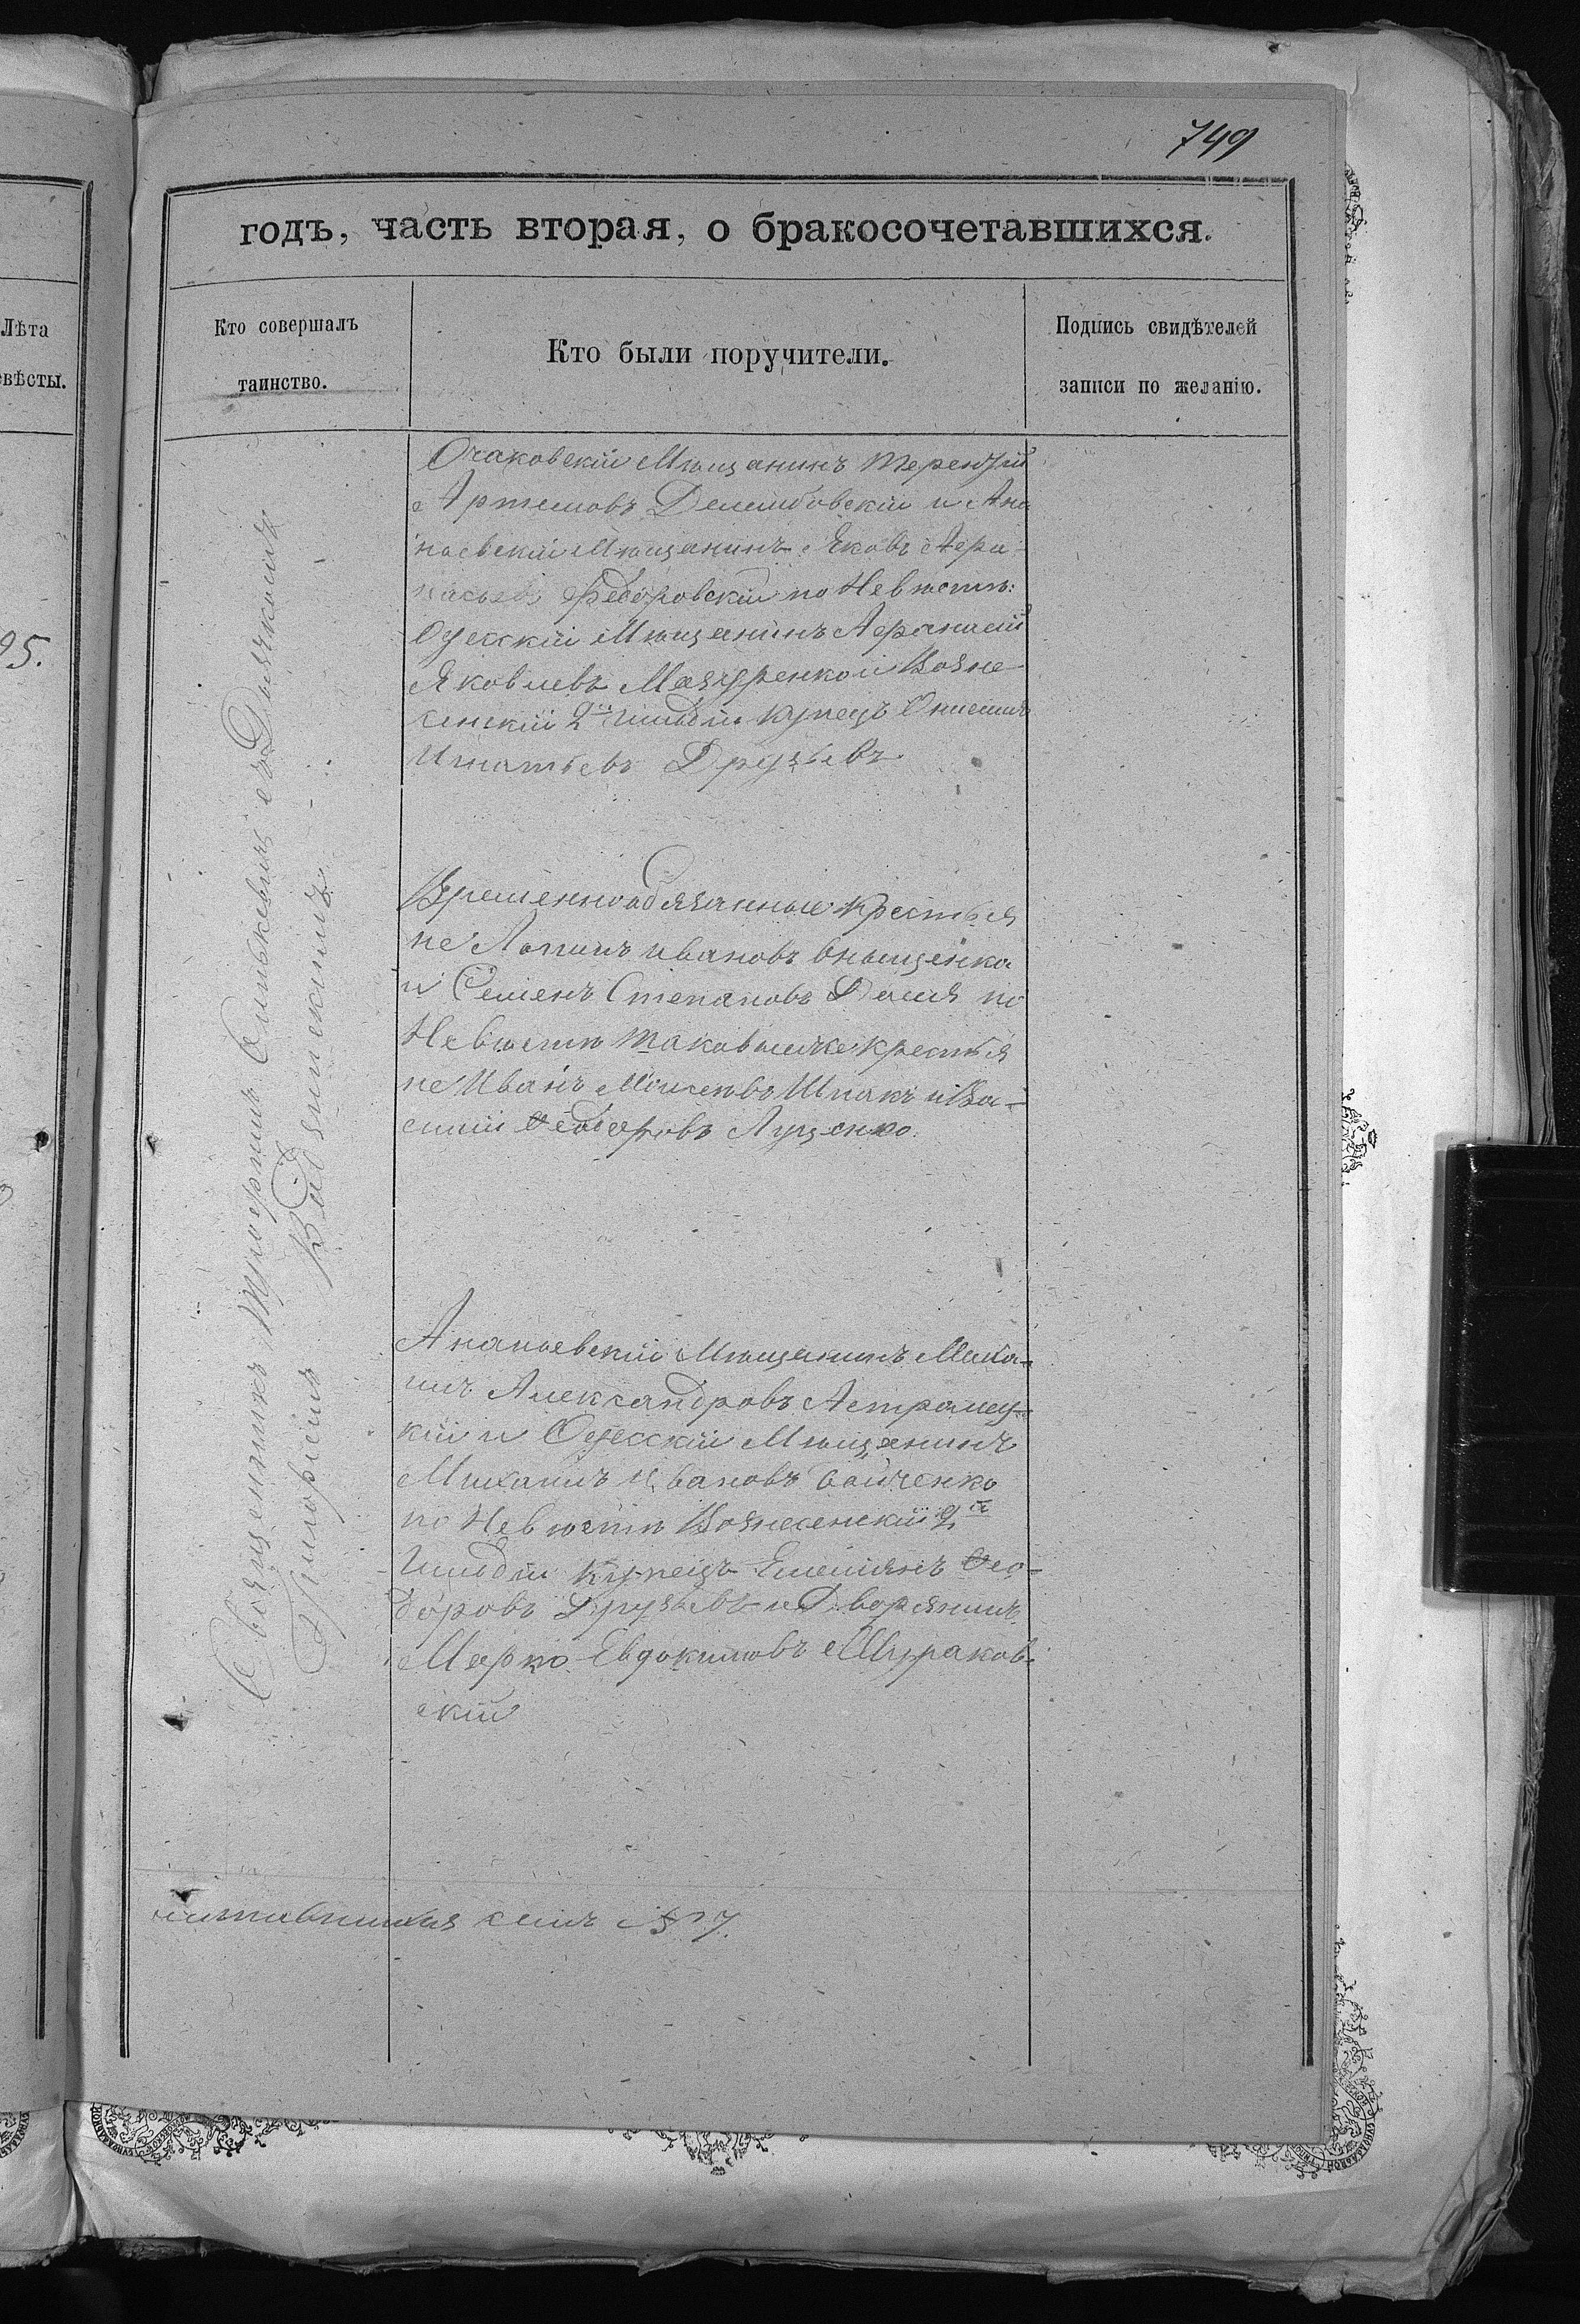 749
годъ, часть вторая, о бракосочетавшихся.
Лѣта
евѣсты.
95.
Кто совершалъ
таинство.
Кто были поручители.
Подпись свидѣтелей
записи по желанію.
Священникъ Трофимъ съ Дьячкомъ
Григоріемъ
Очаковскій Мѣщанинъ Терентій
Артемовъ и Ана
ньевскій Мѣщанинъ Яковъ Афа-
насьевъ Федоровскій по Невѣстѣ:
Одесскій Мѣщанинъ Афанасій
Яковлевъ Мазуренко и Возне-
сенскій 2й гильдіи купецъ Онисимъ
Игнатьевъ Друзьевъ
Временнообязанные крестья
не Логинъ Ивановъ Онищенко
и Семенъ Степановъ по
Невѣстѣ таковые же крестья
не Иванъ Шпакъ и Ва-
силій Ѳеодоровъ Луценко.
Ананьевскій Мѣщанинъ Миха-
илъ Александровъ
кій и Одесскій Мѣщанинъ
Михаилъ Ивановъ Бойченко
по Невѣстѣ Вознесенскій 2й
Гильдіи купецъ Емельянъ Ѳео-
доровъ Друзьевъ и Дворянинъ
Марко Евдокимовъ Мураков-
скій
семь № 7.